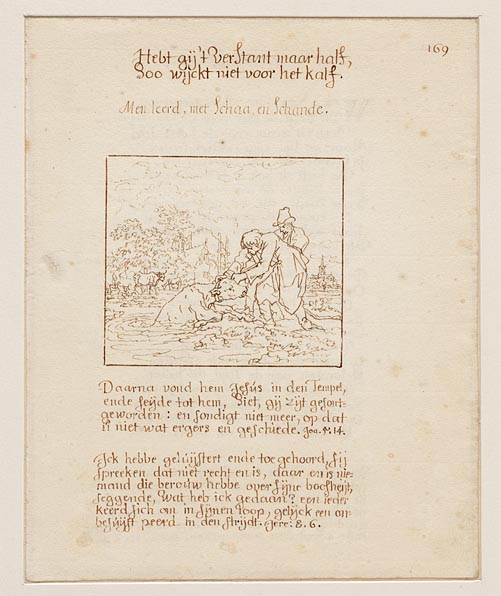 169
Hebt gij't verstant maar half,
Soo wijckt niet voor het kalf.
Men leerd, met Schaa, en Schande.
Daarna vond hem Jesús in den Tempel,
ende seijde tot hem, Siet, gij zijt gesont-
geworden : en sondigt niet meer, op dat
ú niet wat ergers en geschiede. Joa. 5. 14.
Ick hebbe gelúijstert ende toegehoord, sij
spreeken dat niet recht en is, daar en is nie-
mand die beroúw hebbe over sijne boosheijt,
seggende, Wat heb ick gedaan? een ieder
keerd sich om in sijnen loop, gelijck een on-
besúijst peerd in den strijdt. Jere: 8. 6.